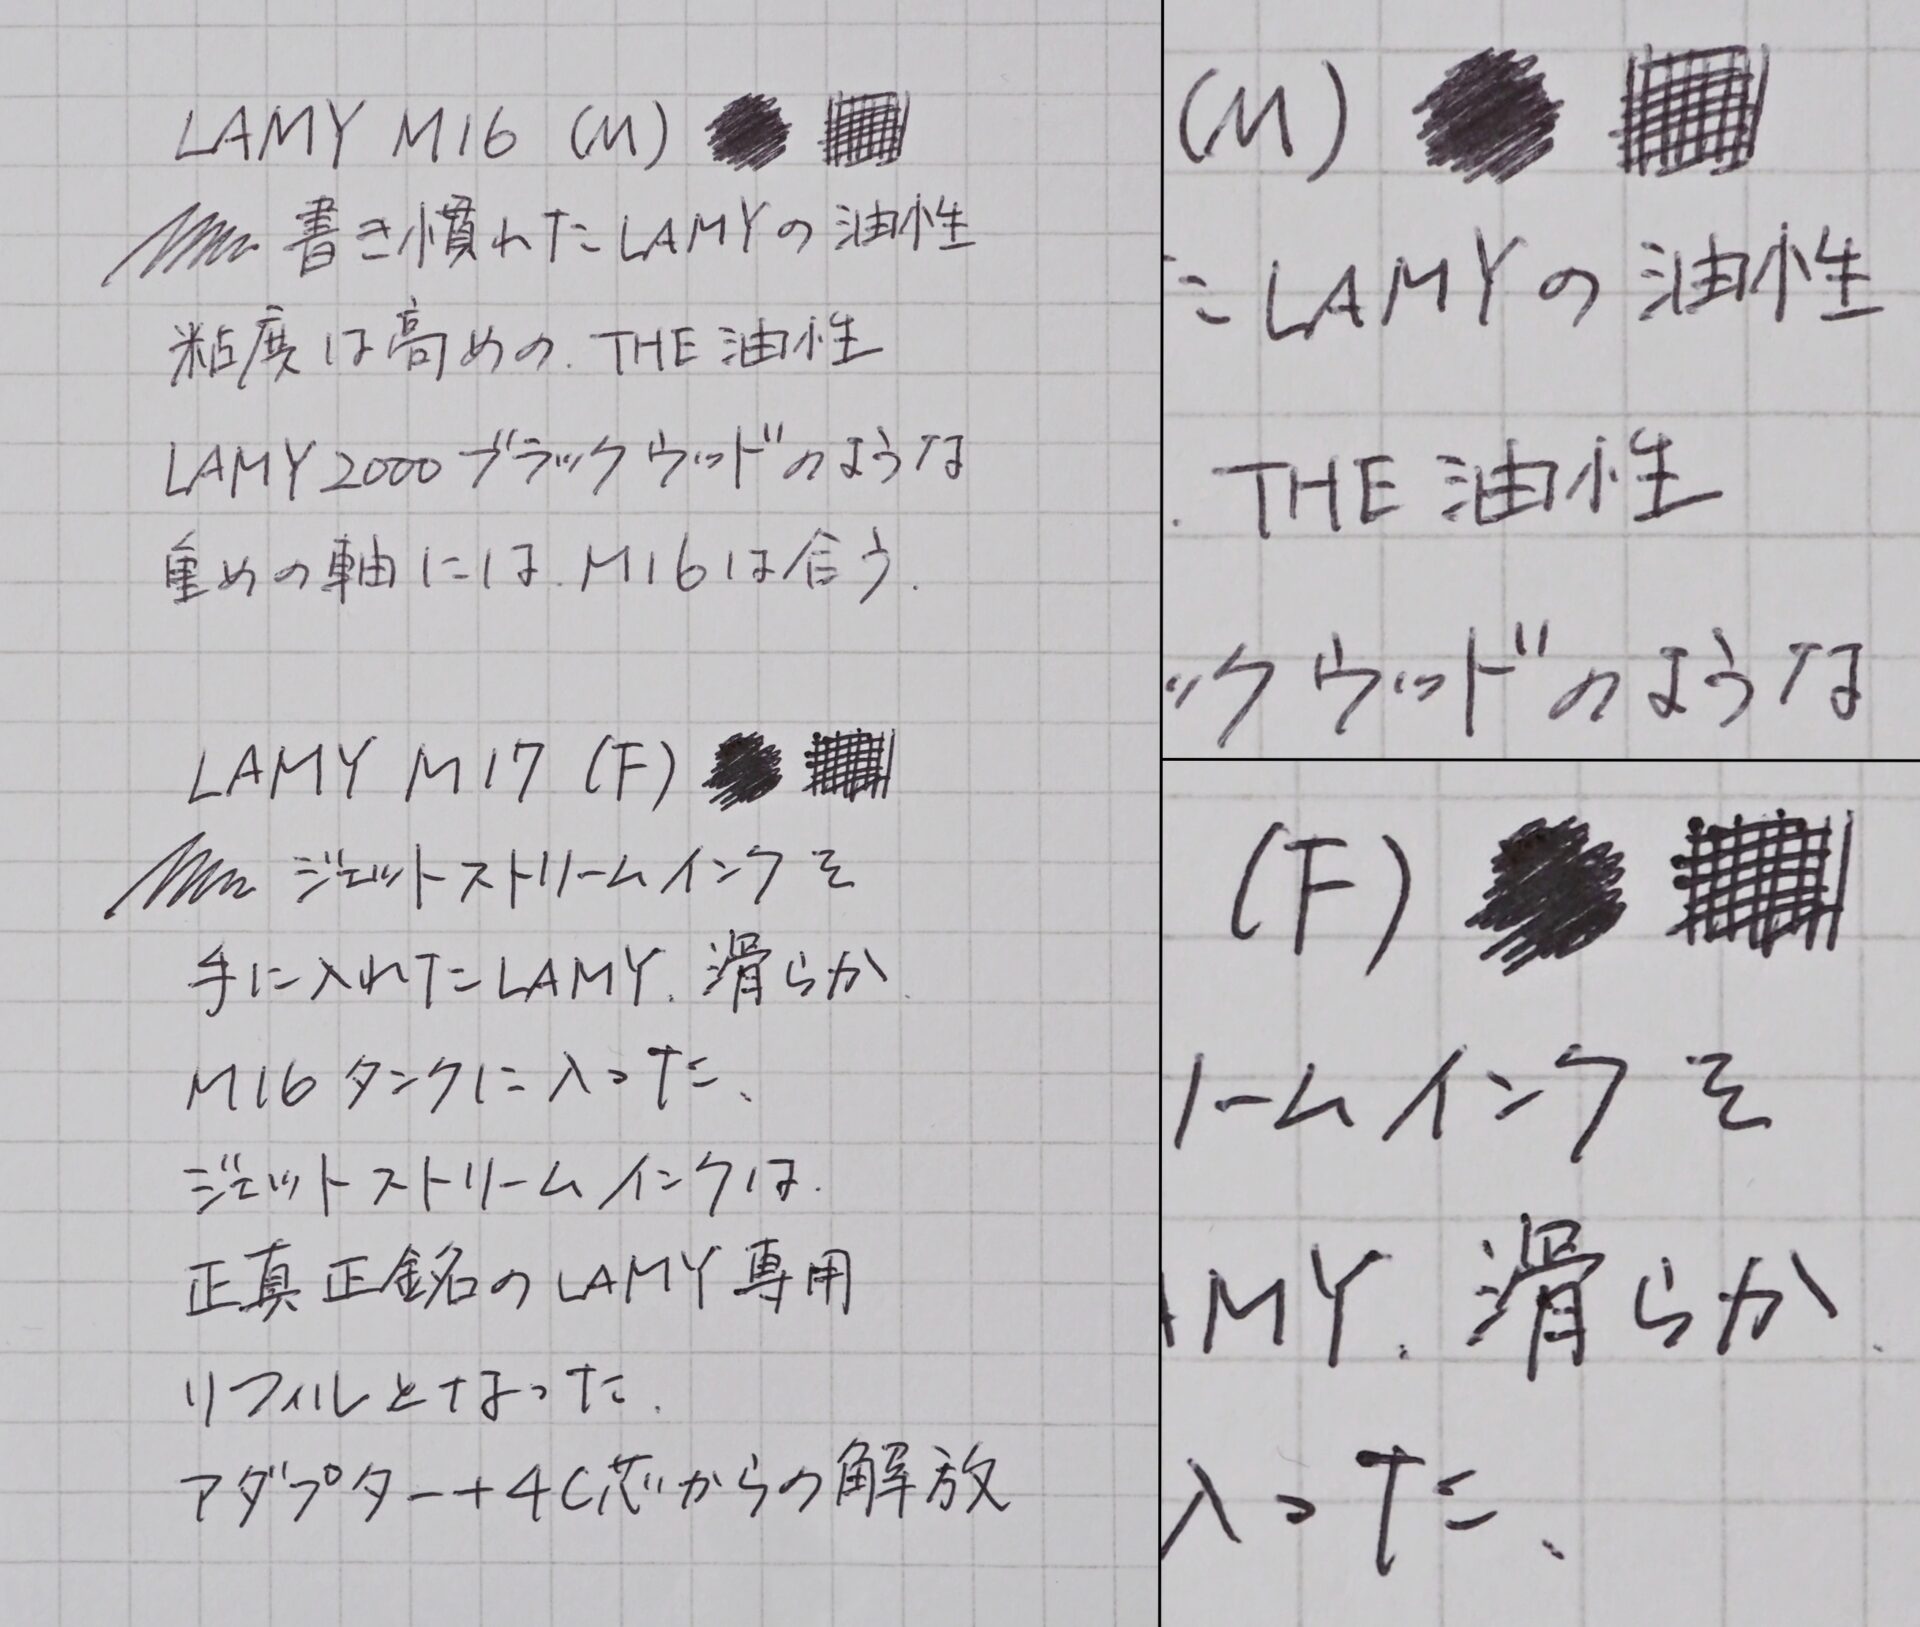 LAMY M16 (M)
書き慣れたLAMYの油性
粘度は高めの.THE油性
LAMY2000ブラックウッドのような
重めの軸には.M16は合う.
LAMY M17 (F)
ジェットストリームインクを
手に入れたLAMY.滑らか.
M16タンクに入った、
ジェットストリームインクは.
正真正銘のLAMY専用
リフィルとなった.
アダプター+4C芯からの解放
(M)
たLAMYの油性
.THE油性
ックウッドのような
(F)
リームインクを
AMY.滑らか.
入った、